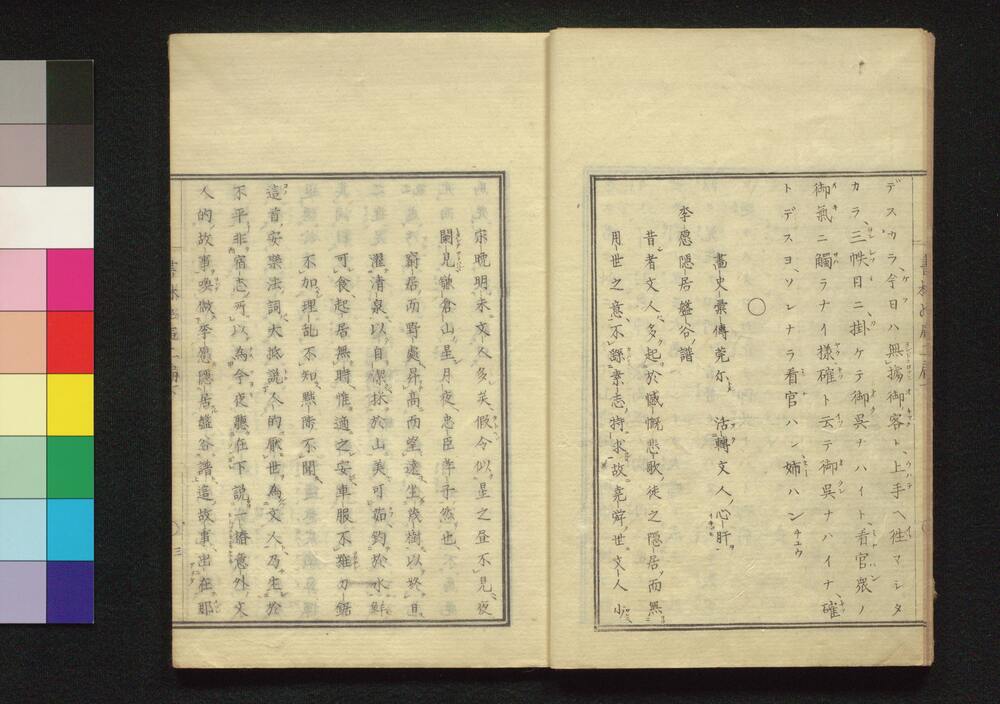 デスカラ、今日ハ無據御客ト、上手ヘ往マシタ
カラ、三帙目ニ掛ケテ御呉ナハイト、看官衆ノ
御氣ニ觸ラナイ樣確ト云テ御呉ナハイナ、確
トデスヨ、ソレナラ看官ハン、姉ハン
○
畵史彙傳莞尓 活轉文人心肝
李愿隱居盤谷譜
昔者文人多起於慨慷悲歌、徒之隱居而無
月世之意、不餘素志、持求故
宋曉明末文人多矣、假令似星之昼不見、夜
闌見鎌倉山星月夜、忠臣孝子然也、
窮居而野處、昇高而望遠、坐茂樹以終日
濯清泉以自潔、採於山美可茹、釣於水鮮
可食、起居無時、惟適之安、車服不維、刀鋸
不加、理乱不知、黜陟不聞
這首安樂法詞、大抵說人的厭世、為文人乃生於
不平非宿志、所以為今夜聽在下說一播意外文
人的故事、喚做李愿隱居盤谷譜、這故事出在那
三